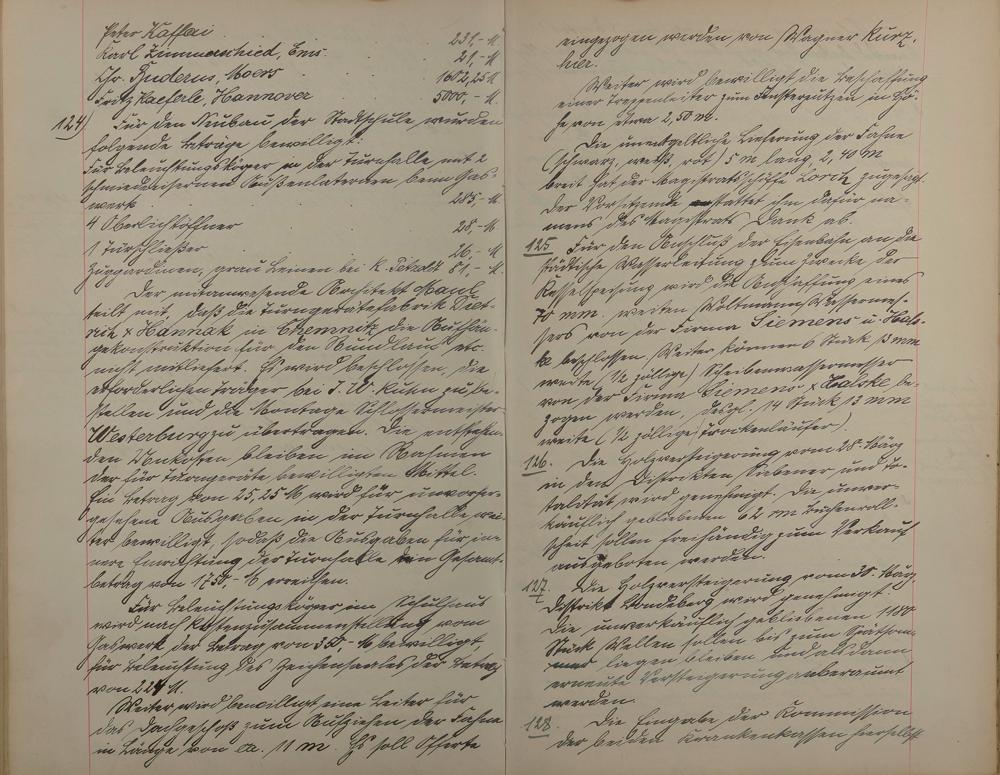 Peter Kaffai 231,- M
Karl Zimmerschied, Ems 21,- M
Chr. Buderus, Moers 1602,25 M
Fritz Haeferle, Hannover 5000,- M.
124) Für den Neubau der Stadtschule wurden
folgende Beträge bewilligt:
Für Beleuchtungskörper in der Turnhalle mit 2
schmiedeeisernen Außenlaternen beim Gas-
werk 285,- M
4 Oberlichtöffner 28,- M
1 Türschließer 26,- M
Zuggardinen, grau Leinen bei K. Petzoldt 51,- M.
Der mitanwesende Architekt Paul
teilt mit, daß die Turngerätefabrik Diet-
rich & Hannak in Chemnitz die Aufhän-
gekonstruktion für den Rundlauf etc.
nicht mitliefert. Es wird beschlossen, die
erforderlichen Träger bei J. W. Kuhn zu be-
stellen und die Montage Schlossermeister
Westerburg zu übertragen. Die entstehen-
den Unkosten bleiben im Rahmen
der für Turngeräte bewilligten Mittel.
Ein Betrag von 25,25 M wird für unvorher-
gesehene Ausgaben in der Turnhalle wei-
ter bewilligt, sodaß die Ausgaben für in-
nere Einrichtung der Turnhalle den Gesamt-
betrag von 1750,- M erreichen.
Für Beleuchtungskörper im Schulhaus
wird nach Kostenzusammenstellung vom
Gaswerk der Betrag von 350,- M bewilligt,
für Beleuchtung des Zeichensaales der Betrag
von 224 M.
Weiter wird bewilligt eine Leiter für
das Dachgeschoß zum Aufziehen der Fahne
in Länge von ca. 11 m. Es soll Offerte
eingezogen werden von Wagner Kurz,
hier.
Weiter wird bewilligt die Beschaffung
einer Treppenleiter zum Fensterputzen in Hö-
he von etwa 2,50 m.
Die unentgeltliche Lieferung der Fahne
(schwarz, weiß, rot) 5 m lang, 2,40 m
breit hat der Magistratsschöffe Lorch zugesagt.
Der Vorsitzende erstattet ihm dafür na-
mens des Magistrats Dank ab.
125 Für den Anschluß der Eisenbahn an die
städtische Wasserleitung zum Zwecke der
Kesselspeisung wird die Anschaffung eines
70 mm weiten Woltmann Wassermes-
sers von der Firma Siemens u. Hals-
ke beschlossen. Weiter können 6 Stück 13 mm
weite (1/2 zöllige) Scheibenwassermesser
von der Firma Siemens & Halske be-
zogen werden, desgl. 14 Stück 13 mm
weite (1/2 zöllige) Trockenläufer.
126. Die Holzversteigerung vom 28. März
in den Distrikten und To-
talität wird genehmigt. Die unver-
käuflich gebliebenen 62 rm Buchenroll-
scheit sollen freihändig zum Verkauf
ausgeboten werden.
127. Die Holzversteigerung vom 30. März
Distrikt wird genehmigt.
Die unverkäuflich gebliebenen 1180
Stück Wellen sollen bis zum Spätsom-
mer liegen bleiben und alsdann
erneute Versteigerung anberaumt
werden.
128. Die Eingabe der Kommission
der beiden Krankenkassen hierselbst